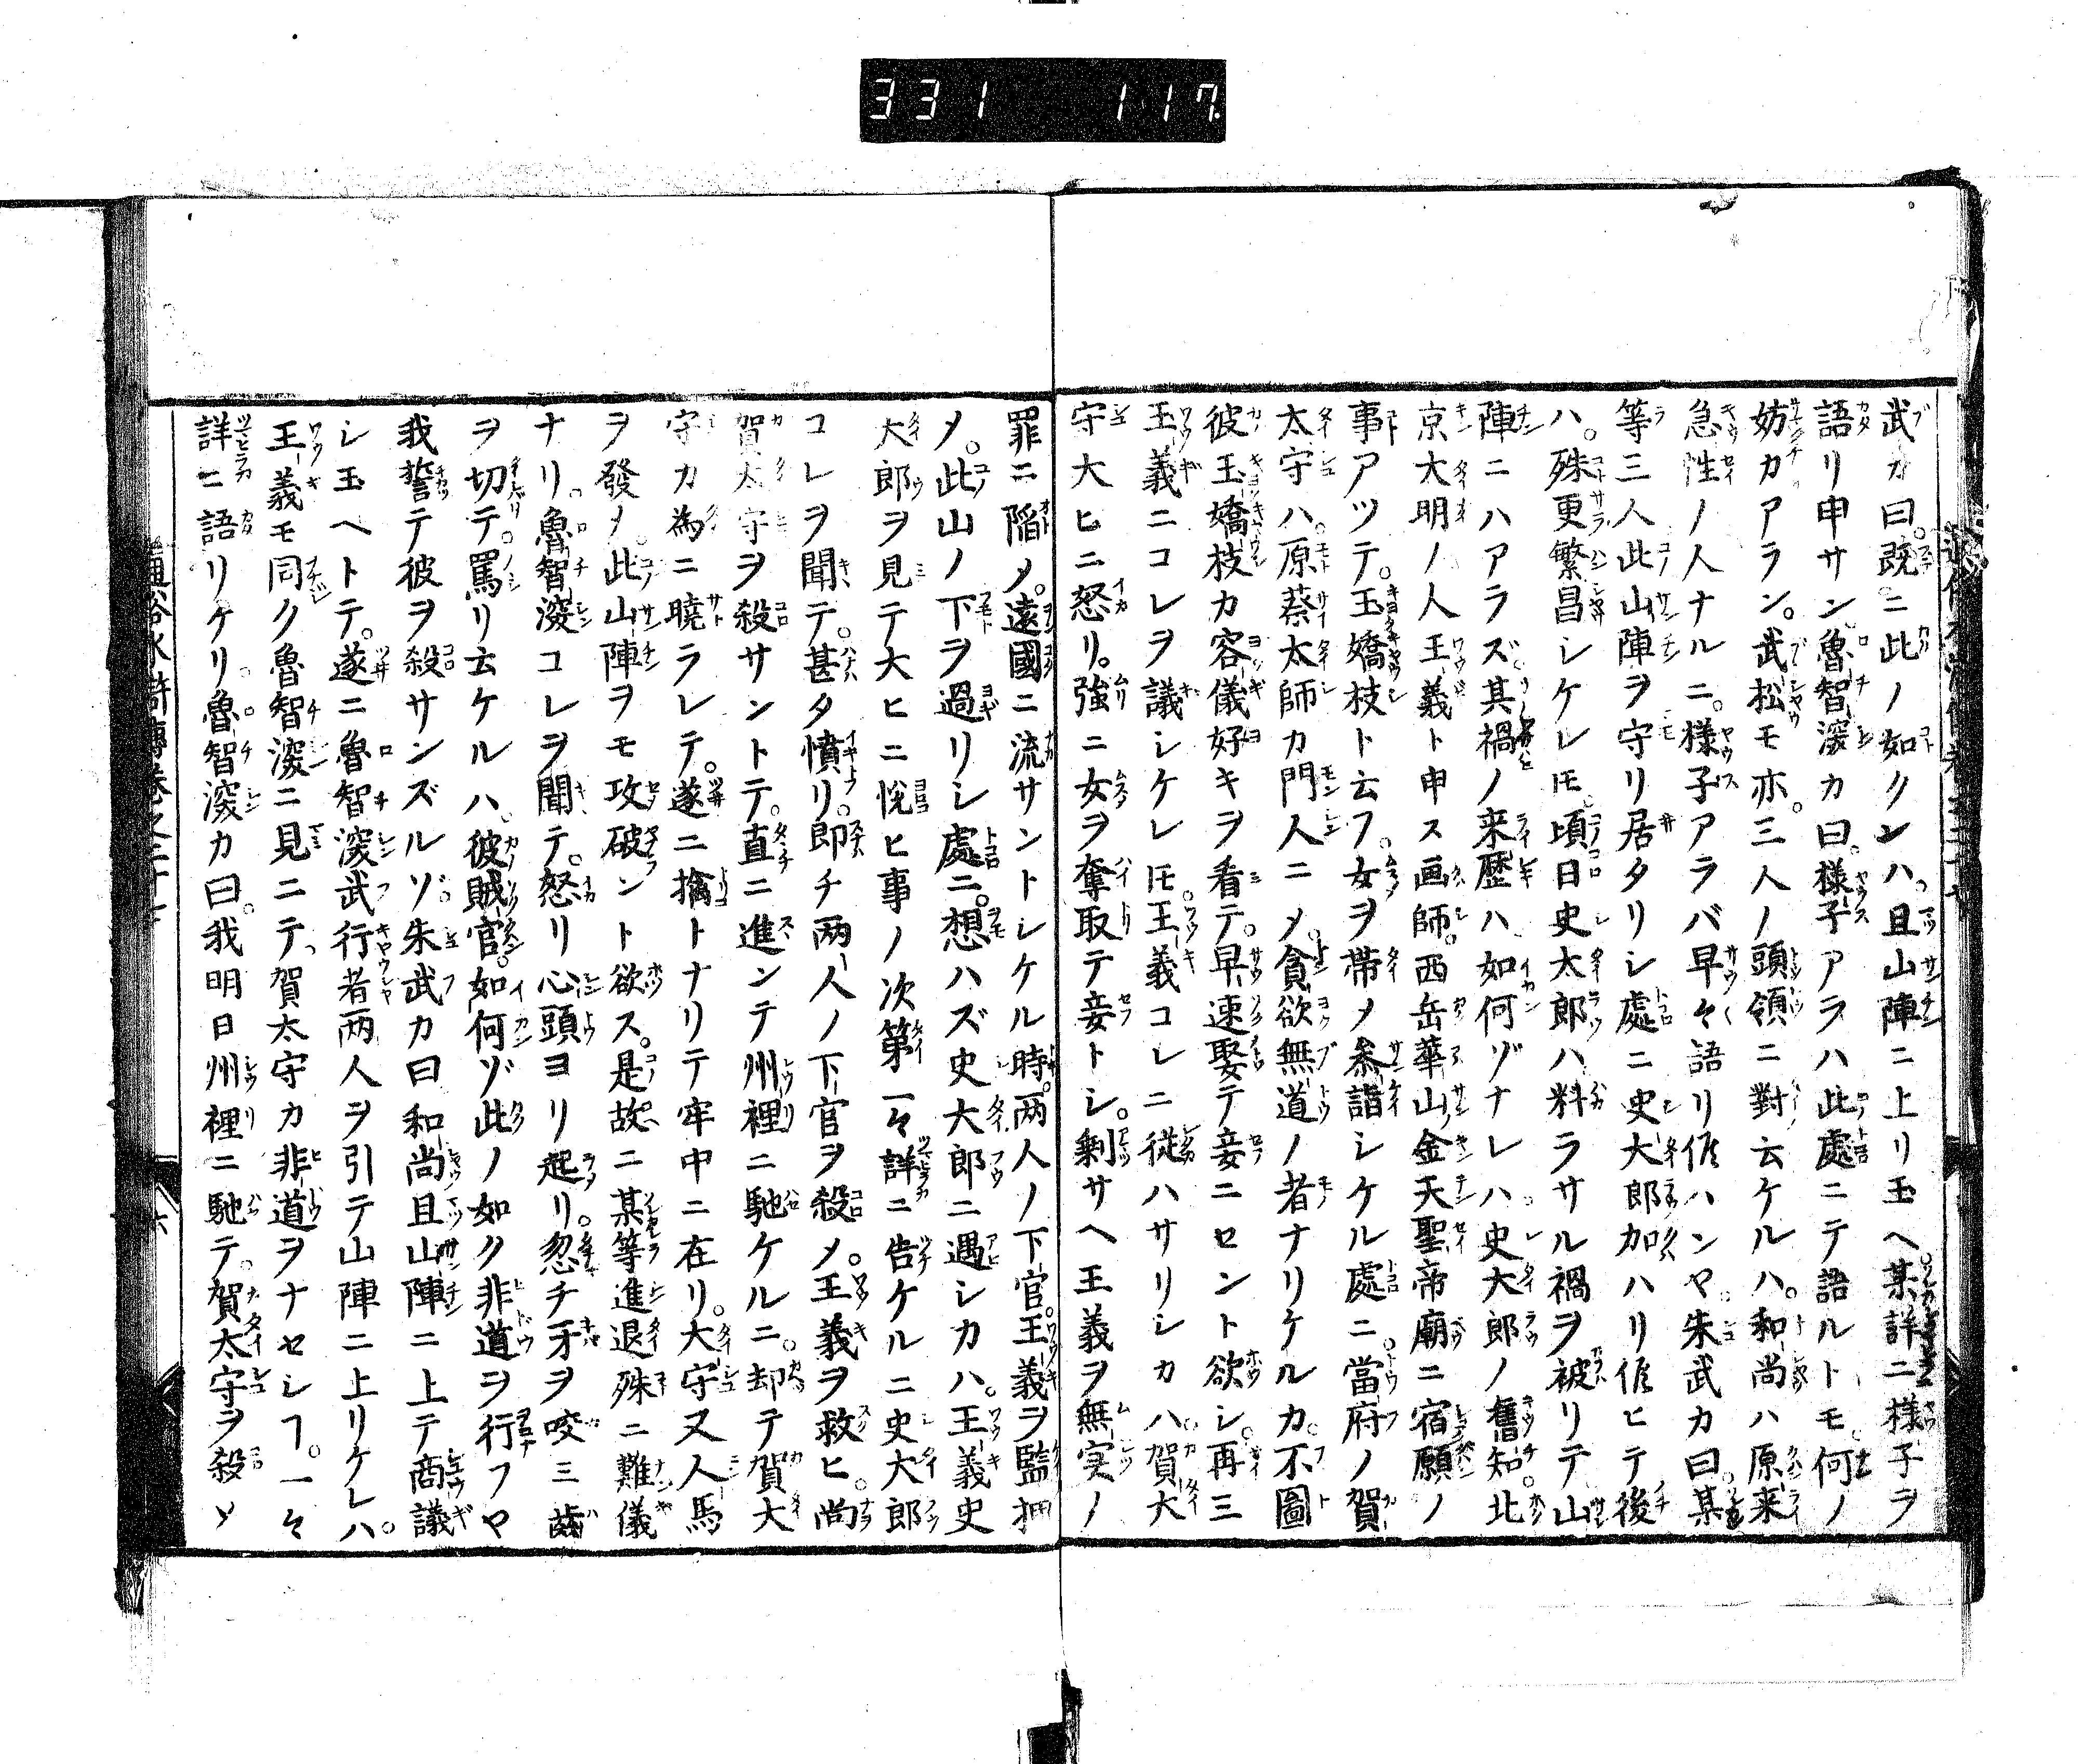 331 117
武カ曰。既ニ此ノ如クンハ。且山陣ニ上リ玉ヘ。某詳ニ様子ヲ
語リ申サン。魯智深カ曰。様子アラハ此處ニテ語ルトモ。何ノ
妨カアラン。武松モ亦。三人ノ頭領ニ對云ケルハ。和尚ハ原来
急性ノ人ナルニ。様子アラバ早々語リ候ハンヤ。朱武カ曰。某
等三人此山陣ヲ守リ居タリシ處ニ史大郎加ハリ候ヒテ後
ハ。殊更繁昌シケレ𪜈。頃日史太郎ハ料ラサル禍ヲ被リテ山
陣ニハアラズ。其禍ノ来歴ハ如何ゾナレハ。史大郎ノ舊知。北
京大明ノ人王義ト申ス画師。西岳華山金天聖帝廟ニ宿願ノ
事アツテ。玉嬌枝ト云フ。女ヲ帶メ叅詣シケル處ニ。當府ノ賀
太守ハ。原蔡太師カ門人ニメ。貪欲無道ノ者ナリケルカ。不圖
彼玉嬌枝カ容儀好キヲ看テ。早速娶テ妾ニセント欲シ。再三
王義ニコレヲ議シケレ𪜈。王義コレニ従ハサリシカハ。賀大
守大ヒニ怒リ。強ニ女ヲ奪取テ妾トシ。剰サヘ王義ヲ無実ノ
罪ニ陥メ。遠國ニ流サントシケル時。两人ノ下官。王義ヲ監押
メ。此山ノ下ヲ過リシ處ニ。想ハズ史大郎ニ遇シカハ。王義史
大郎ヲ見テ大ヒニ悦ヒ事ノ次第一々詳ニ告ケルニ史大郎
コレヲ聞テ。甚タ憤リ。即チ两人ノ下官ヲ殺メ。王義ヲ救ヒ。尚
賀太守ヲ殺サントテ。直ニ進ンテ州裡ニ馳ケルニ。却テ賀大
守カ為ニ曉ラレテ。遂ニ擒トナリテ牢中ニ在リ。大守又人馬
ヲ發メ。此山陣ヲモ攻破ント欲ス。是故ニ某等進退殊ニ難儀
ナリ。魯智深コレヲ聞テ。怒リ心頭ヨリ起リ。忽チ牙ヲ咬ミ齒
ヲ切テ。罵リ云ケルハ。彼賊官。如何ゾ此ノ如ク非道ヲ行フヤ
我誓テ彼ヲ殺サンズルゾ。朱武カ曰和尚且山陣ニ上テ商議
シ玉ヘトテ。遂ニ魯智深武行者两人ヲ引テ山陣ニ上リケレハ。
王義モ同ク魯智深ニ見ニテ。賀太守カ非道ヲナセシヿ。一々
詳ニ語リケリ。魯智深カ曰。我明日州裡ニ馳テ。賀太守ヲ殺メ
通俗水滸傳卷之三十七
六